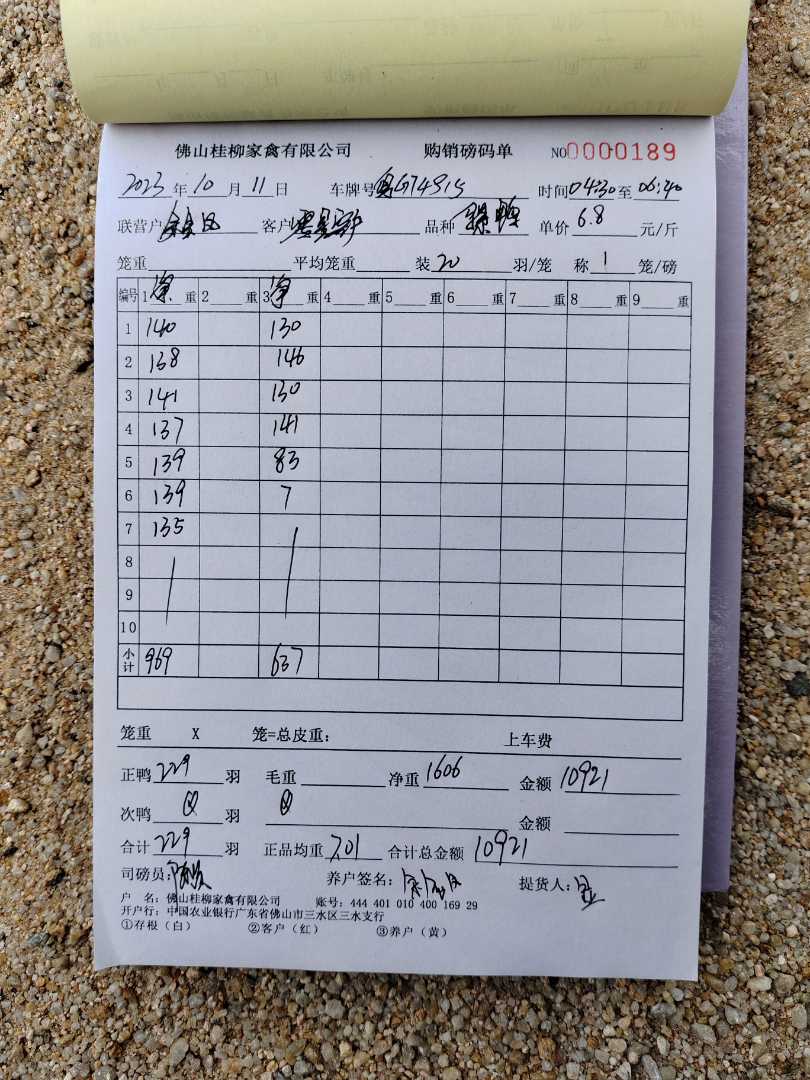 佛山桂柳家禽有限公司 购销磅码单 NO0000189
2023 年 10 月 11 日 车牌号 时间 04:30 至 06:40
联营户 客户 品种 单价 6.8 元/斤
笼重 平均笼重 装 20 羽/笼 称 1 笼/磅
编号 1 净 重 2 重 3 净 重 4 重 5 重 6 重 7 重 8 重 9 重
1 140 130
2 138 146
3 141 130
4 137 141
5 139 83
6 139 7
7 135
8
9
10
小计 969 637
笼重 X 笼=总皮重： 上车费
正鸭 229 羽 毛重 净重 1606 金额 10921
次鸭 羽 金额
合计 229 羽 正品均重 7.01 合计总金额 10921
司磅员： 养户签名： 提货人：
户 名：佛山桂柳家禽有限公司 账号：444 401 010 400 169 29
开户行：中国农业银行广东省佛山市三水区三水支行
①存根（白） ②客户（红） ③养户（黄）